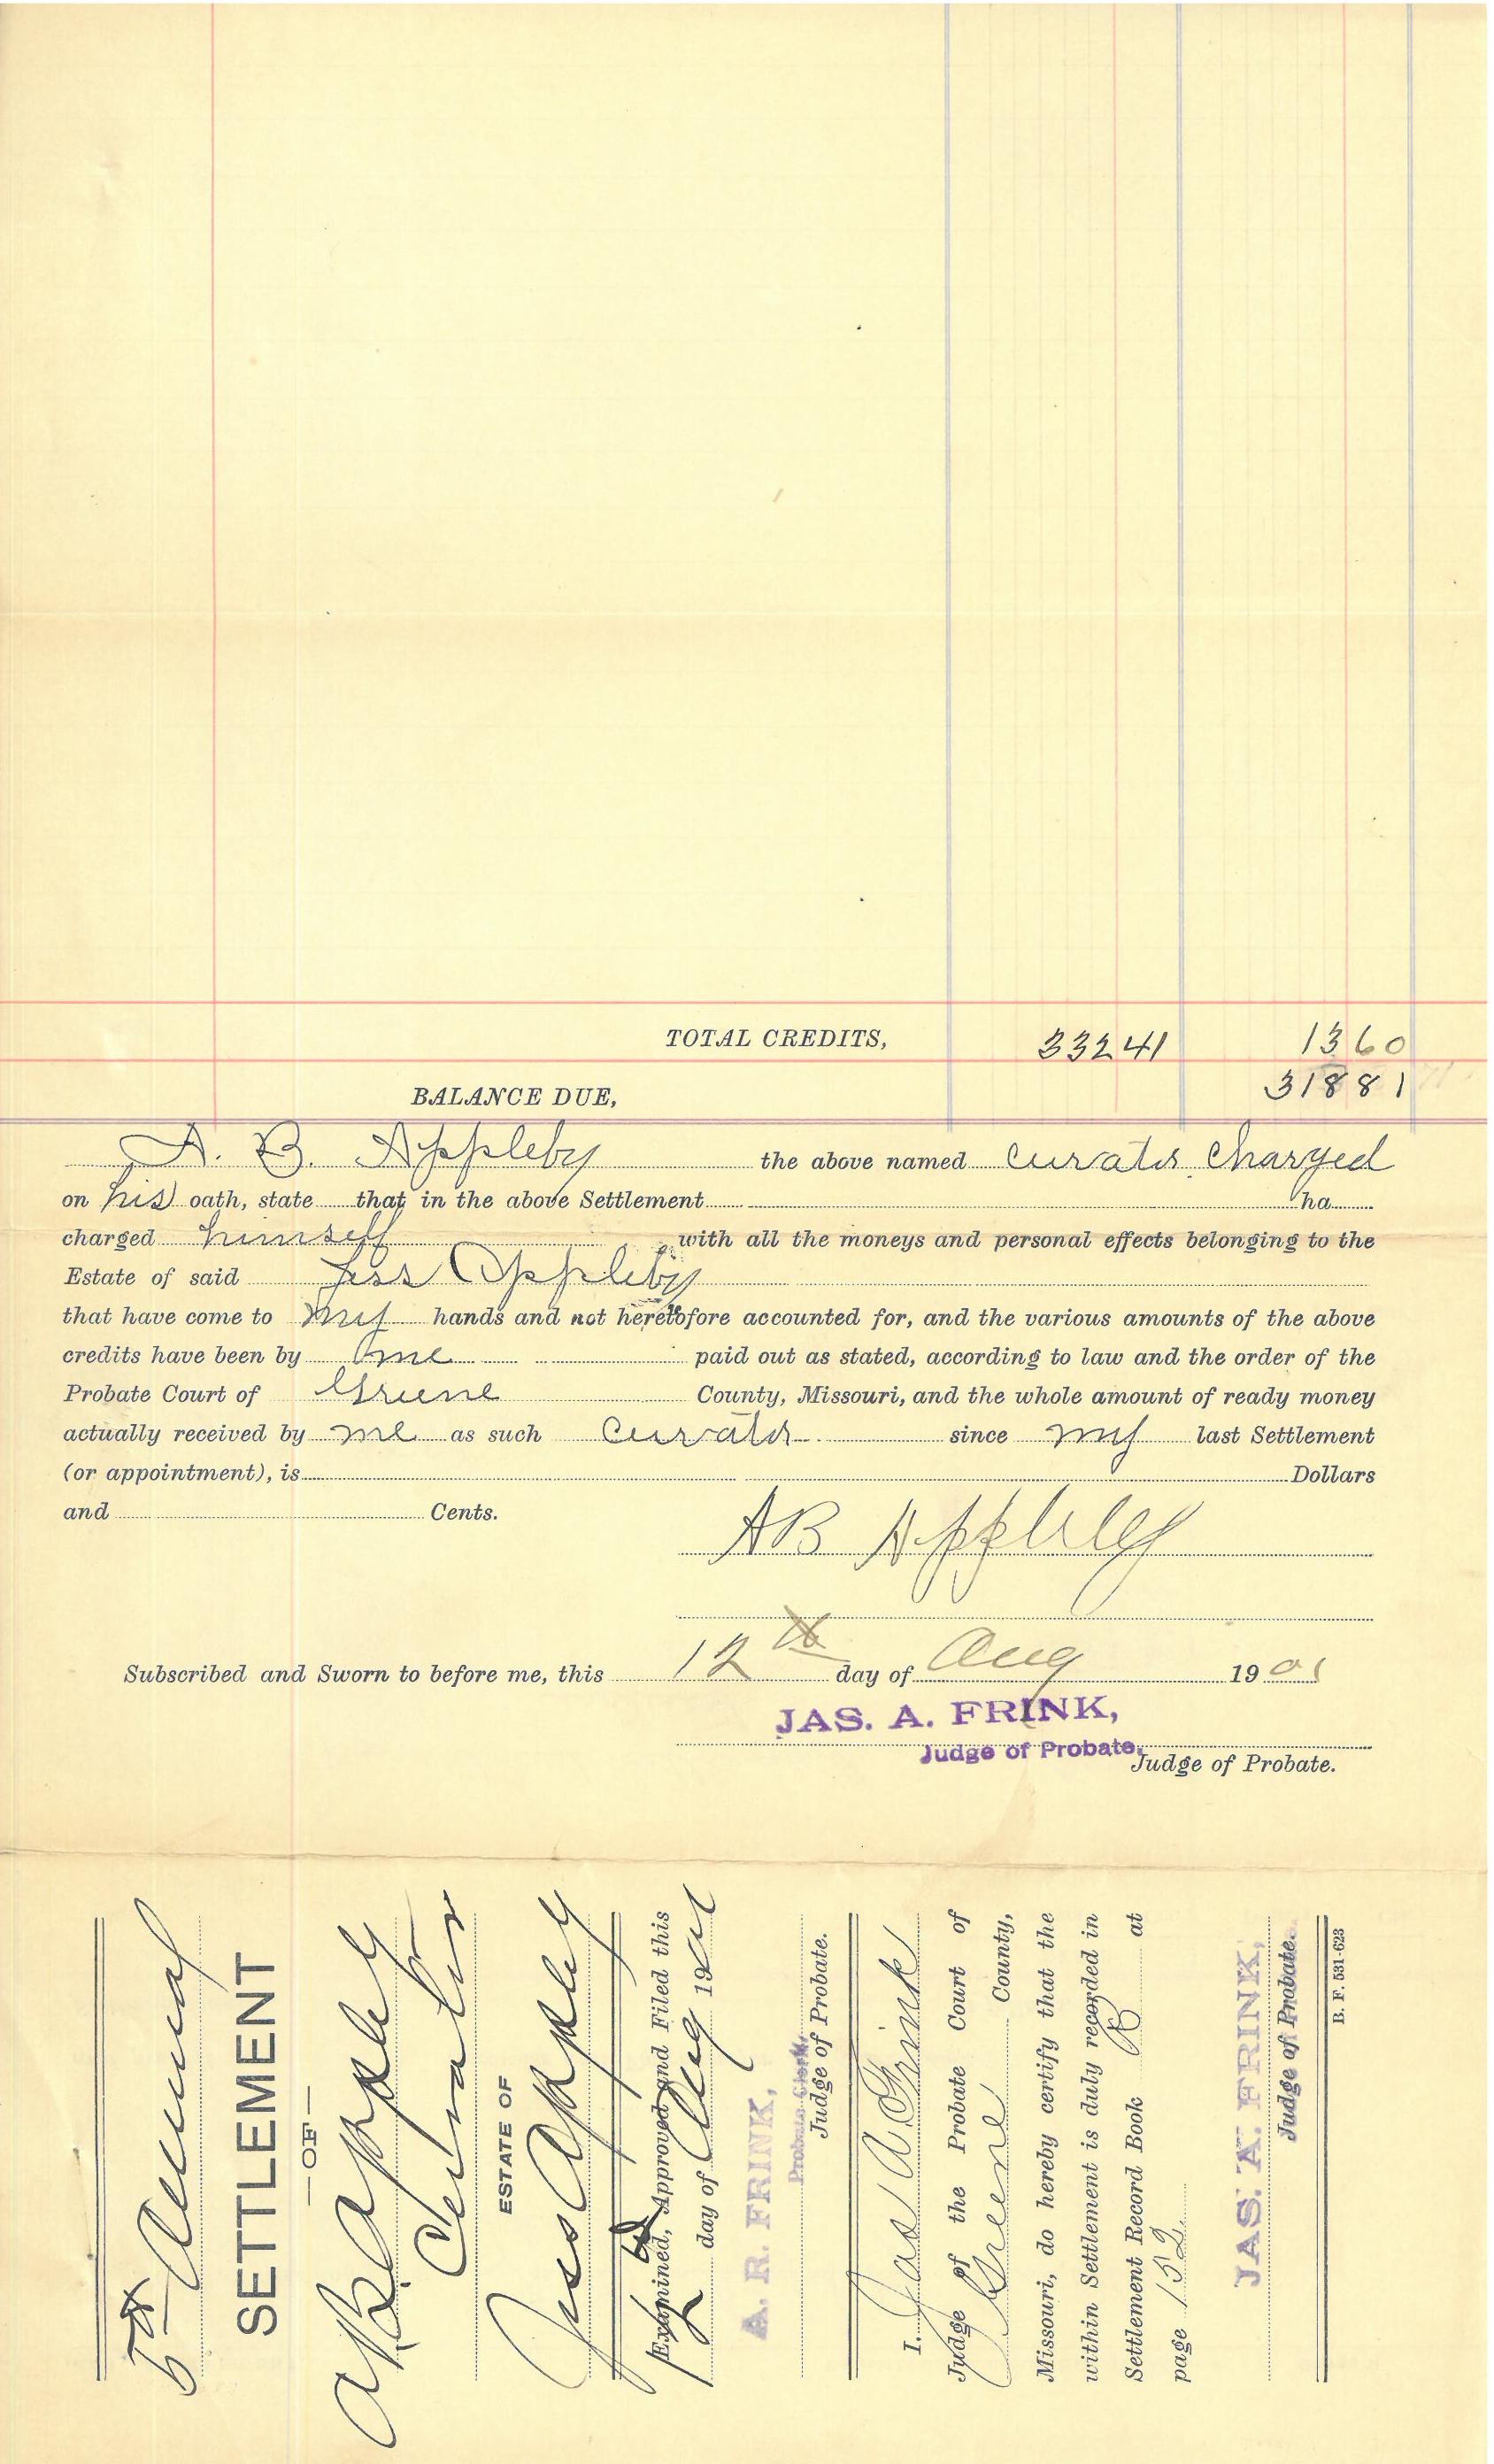 TOTAL CREDITS, 332 41 13 60
BALANCE DUE, 318 81
A. B. Appleby the above named Curator Charged
on his oath, state that in the above Settlement ha
charged himself with all the moneys and personal effects belonging to the
Estate of said Jess Appleby
that have come to my hands and not heretofore accounted for, and the various amounts of the above
credits have been by me paid out as stated, according to law and the order of the
Probate Court of Greene County, Missouri, and the whole amount of ready money
actually received by me as such Curator since my last Settlement
(or appointment), is Dollars
and Cents.
AB Appleby
Subscribed and Sworn to before me, this 12th day of Aug 1901
JAS. A. FRINK,
Judge of Probate.
Judge of Probate.
5th Annual
SETTLEMENT
—OF—
AB Appleby
Curator
ESTATE OF
Jess Appleby
Examined, Approved and Filed this
12th day of Aug 1901
A. R. FRINK,
Probate Clerk,
Judge of Probate.
I, Jas A. Frink
Judge of the Probate Court of
Greene County,
Missouri, do hereby certify that the
within Settlement is duly recorded in
Settlement Record Book B at
page 152
JAS. A. FRINK,
Judge of Probate.
B. F. 531-623